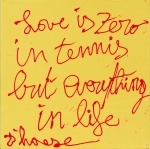 Love is Zero
in tennis
but everything
in life
D'hoese